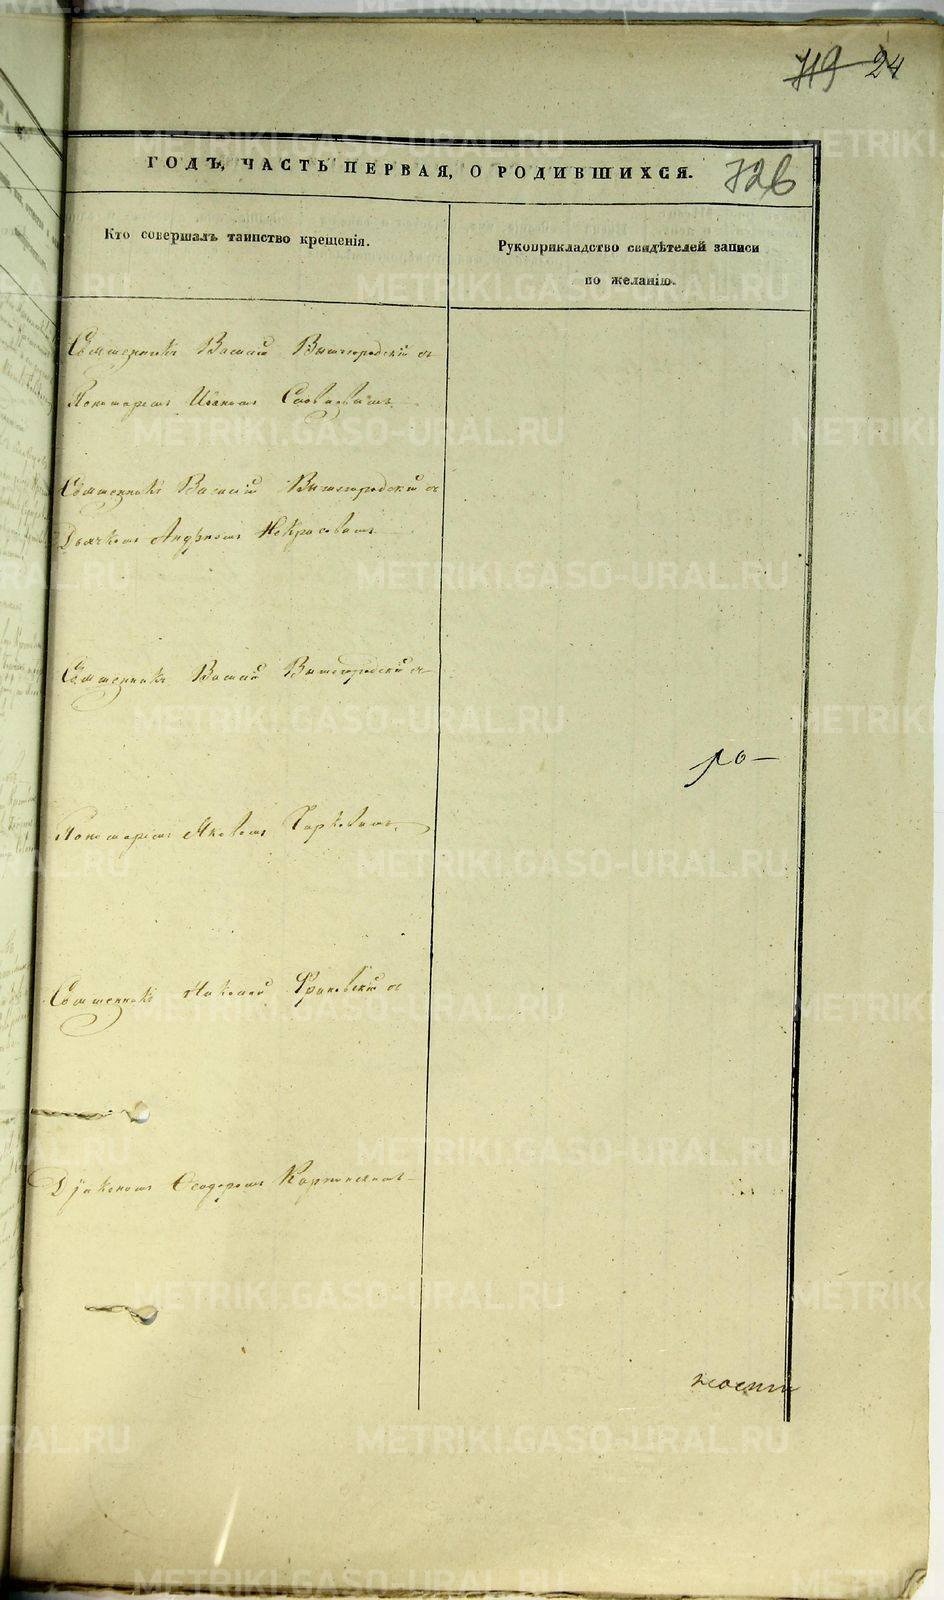 719 24
ГОДЪ, ЧАСТЬ ПЕРВАЯ, О РОДИВШИХСЯ. 726
Кто совершалъ таинство крещенія.
Рукоприкладство свидѣтелей записи
по желанію.
Священникъ Василій Вышегородскій съ
Пономаремъ Иваномъ
Священникъ Василій Вышегородскій съ
Дьячкомъ Андреемъ Некрасовымъ
Священникъ Василій Вышегородскій съ
Пономаремъ Яковомъ
Священникъ Николай съ
Діакономъ Ѳеодоромъ Карпинскимъ
METRIKI.GASO-URAL.RU